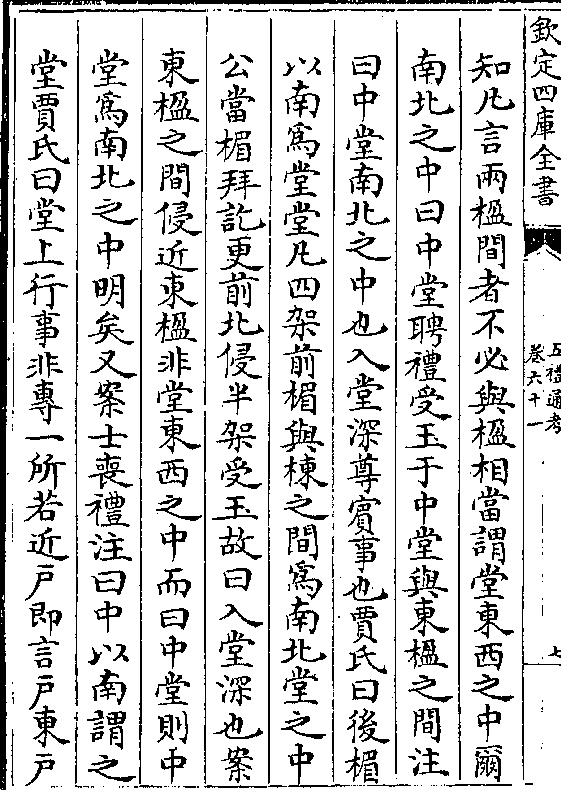 欽定四庫全書
五禮通考
卷六十一
七
知凡言兩楹間者不必與楹相當謂堂東西之中爾
南北之中曰中堂聘禮受玉于中堂與東楹之間注
曰中堂南北之中也入堂深尊賓事也賈氏曰後楣
以南爲堂堂凡四架前楣與棟之間爲南北堂之中
公當楣拜訖更前北侵半架受玉故曰入堂深也案
東楹之間侵近東楹非堂東西之中而曰中堂則中
堂爲南北之中明矣又案士喪禮注曰中以南謂之
堂賈氏曰堂上行事非專一所若近戸即言戸東戸